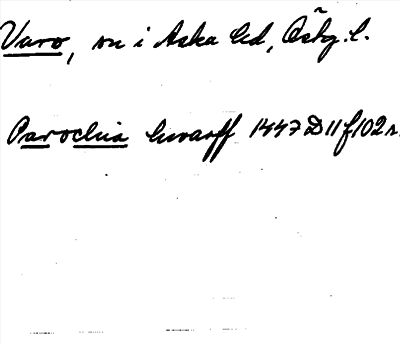 Varv, sn i Aska hd, Östg. l.
Parochia hwarff 1447 D 11 f 102 r.